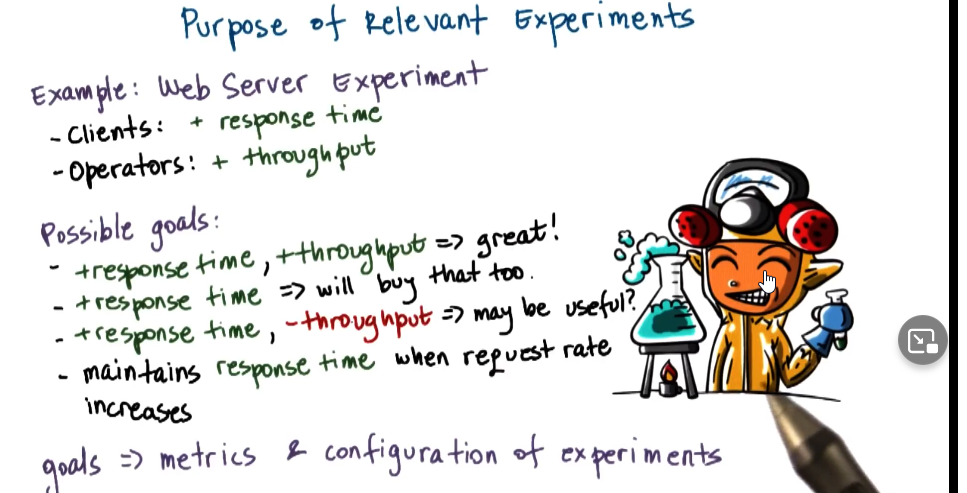 Purpose of Relevant Experiments
Example: Web Server Experiment
- Clients: + response time
- Operators: + throughput
Possible goals:
- +response time, +throughput => great!
- +response time => will buy that too.
- +response time, -throughput => may be useful?
- maintains response time when request rate
increases
goals => metrics & configuration of experiments